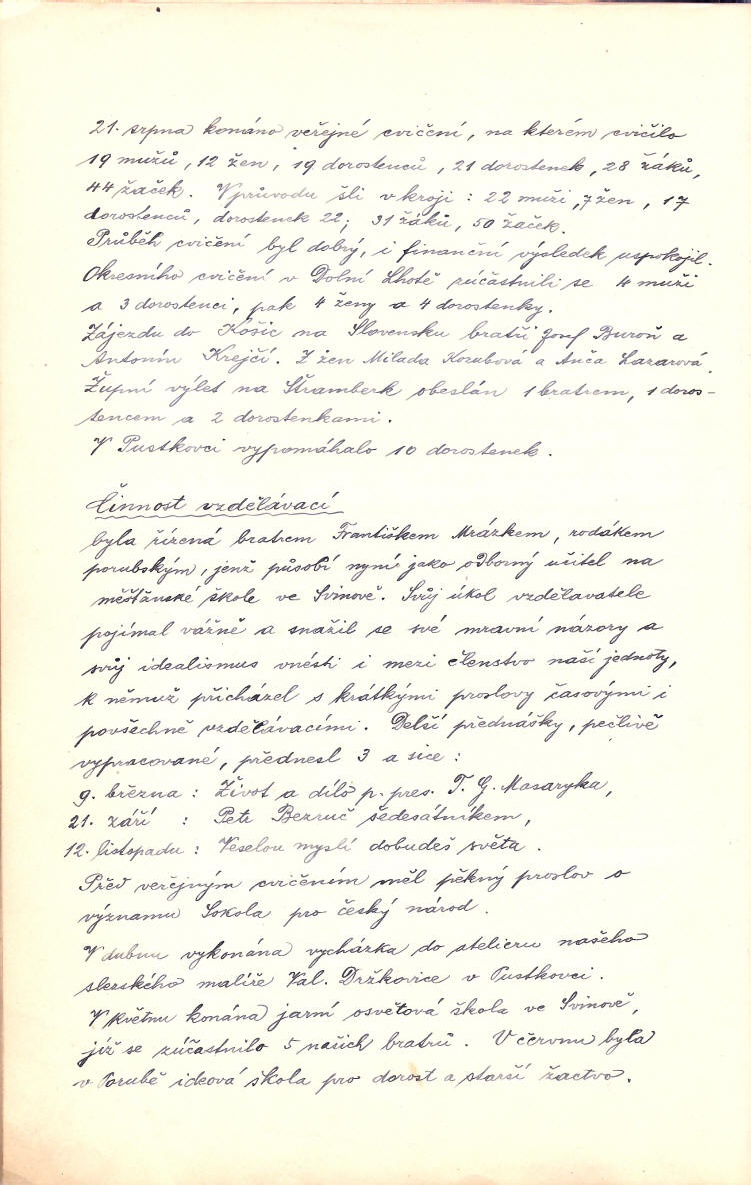 21. srpna konáno veřejné cvičení, na kterém cvičilo
19 mužů, 12 žen, 19 dorostenců, 21 dorostenek, 28 žáků,
44 žaček. V průvodu šli v kroji: 22 muži, 7 žen, 17
dorostenců, dorostenek 22; 31 žáků, 50 žaček.
Průběh cvičení byl dobrý, i finanční výsledek uspokojil.
Okresního cvičení v Dolní Lhotě zúčastnili se 4 muži
a 3 dorostenci, pak 4 ženy a 4 dorostenky.
Zájezdu do Košic na Slovensku bratři Josef Buroň a
Antonín Krejčí. Z žen Milada Kozubová a Anča Lazarová.
Župní výlet na Štramberk obeslán 1 bratrem, 1 doros-
tencem a 2 dorostenkami.
V Pustkovci vypomáhalo 10 dorostenek.
Činnost vzdělávací
byla řízená bratrem Františkem Mrázkem, rodákem
porubským, jenž působí nyní jako odborný učitel na
měšťanské škole ve Svinově. Svůj úkol vzdělavatele
pojímal vážně a snažil se své mravní názory a
svůj idealismus vnésti i mezi členstvo naší jednoty,
k němuž přicházel s krátkými proslovy časovými i
povšechně vzdělávacími. Delší přednášky, pečlivě
vypracované, přednesl 3 a sice:
9. března: Život a dílo p. pres. T. G. Masaryka,
21. září : Petr Bezruč šedesátníkem,
12. listopadu: Veselou myslí dobudeš světa.
Před veřejným cvičením měl pěkný proslov o
významu Sokola pro český národ.
V dubnu vykonána vycházka do atelieru našeho
slezského malíře Val. Držkovice v Pustkovci.
V květnu konána jarní osvětová škola ve Svinově,
jíž se zúčastnilo 5 našich bratrů. V červnu byla
v Porubě ideová škola pro dorost a starší žactvo.